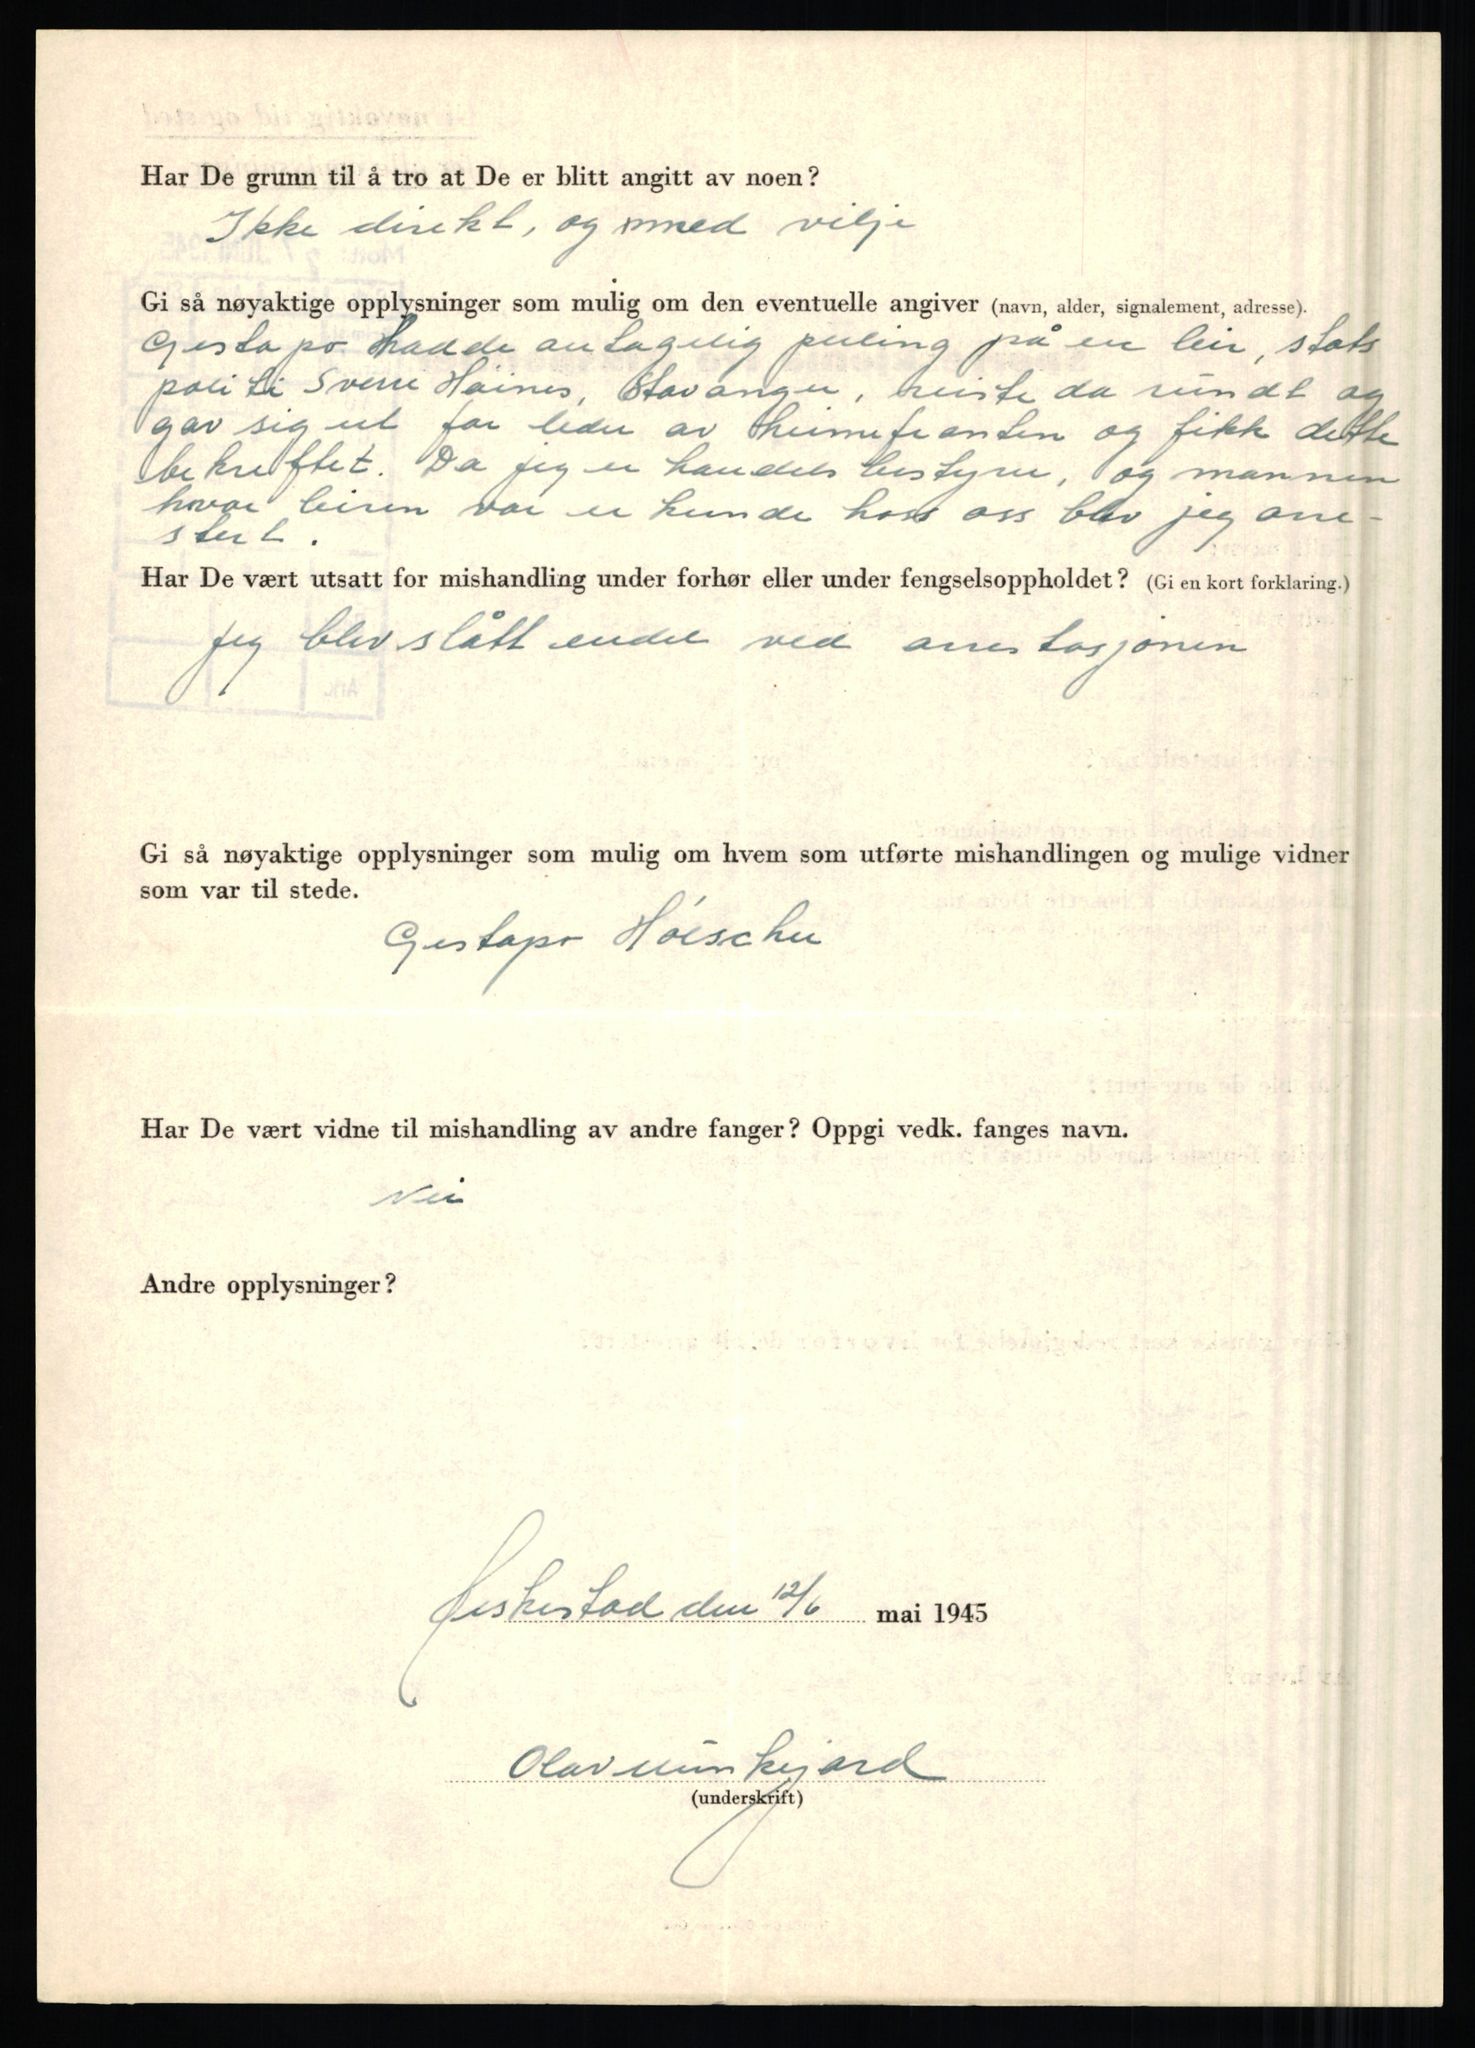 Har De grunn til å tro at De er blitt angitt av noen?
Ikke direkt, og med vilje
Gi så nøyaktige opplysninger som mulig om den eventuelle angiver (navn, alder, signalement, adresse).
Gestapo hadde antagelig peiling på en leir, stats
politi Sverre Høines, Stavanger, reiste da rundt og
gav sig ut for leder av heimefronten og fikk dette
bekreftet. Da jeg er handelsbestyrer, og mannen
hvor leiren var er kunde hoss oss blev jeg arre-
stert.
Har De vært utsatt for mishandling under forhør eller under fengselsoppholdet? (Gi en kort forklaring.)
Jeg blev slått endel ved arrestasjonen
Gi så nøyaktige opplysninger som mulig om hvem som utførte mishandlingen og mulige vidner
som var til stede.
Gestapo Hölscher
Har De vært vidne til mishandling av andre fanger? Oppgi vedk. fanges navn.
Nei
Andre opplysninger?
Heskestad den 12/6 mai 1945
Olav
(underskrift)